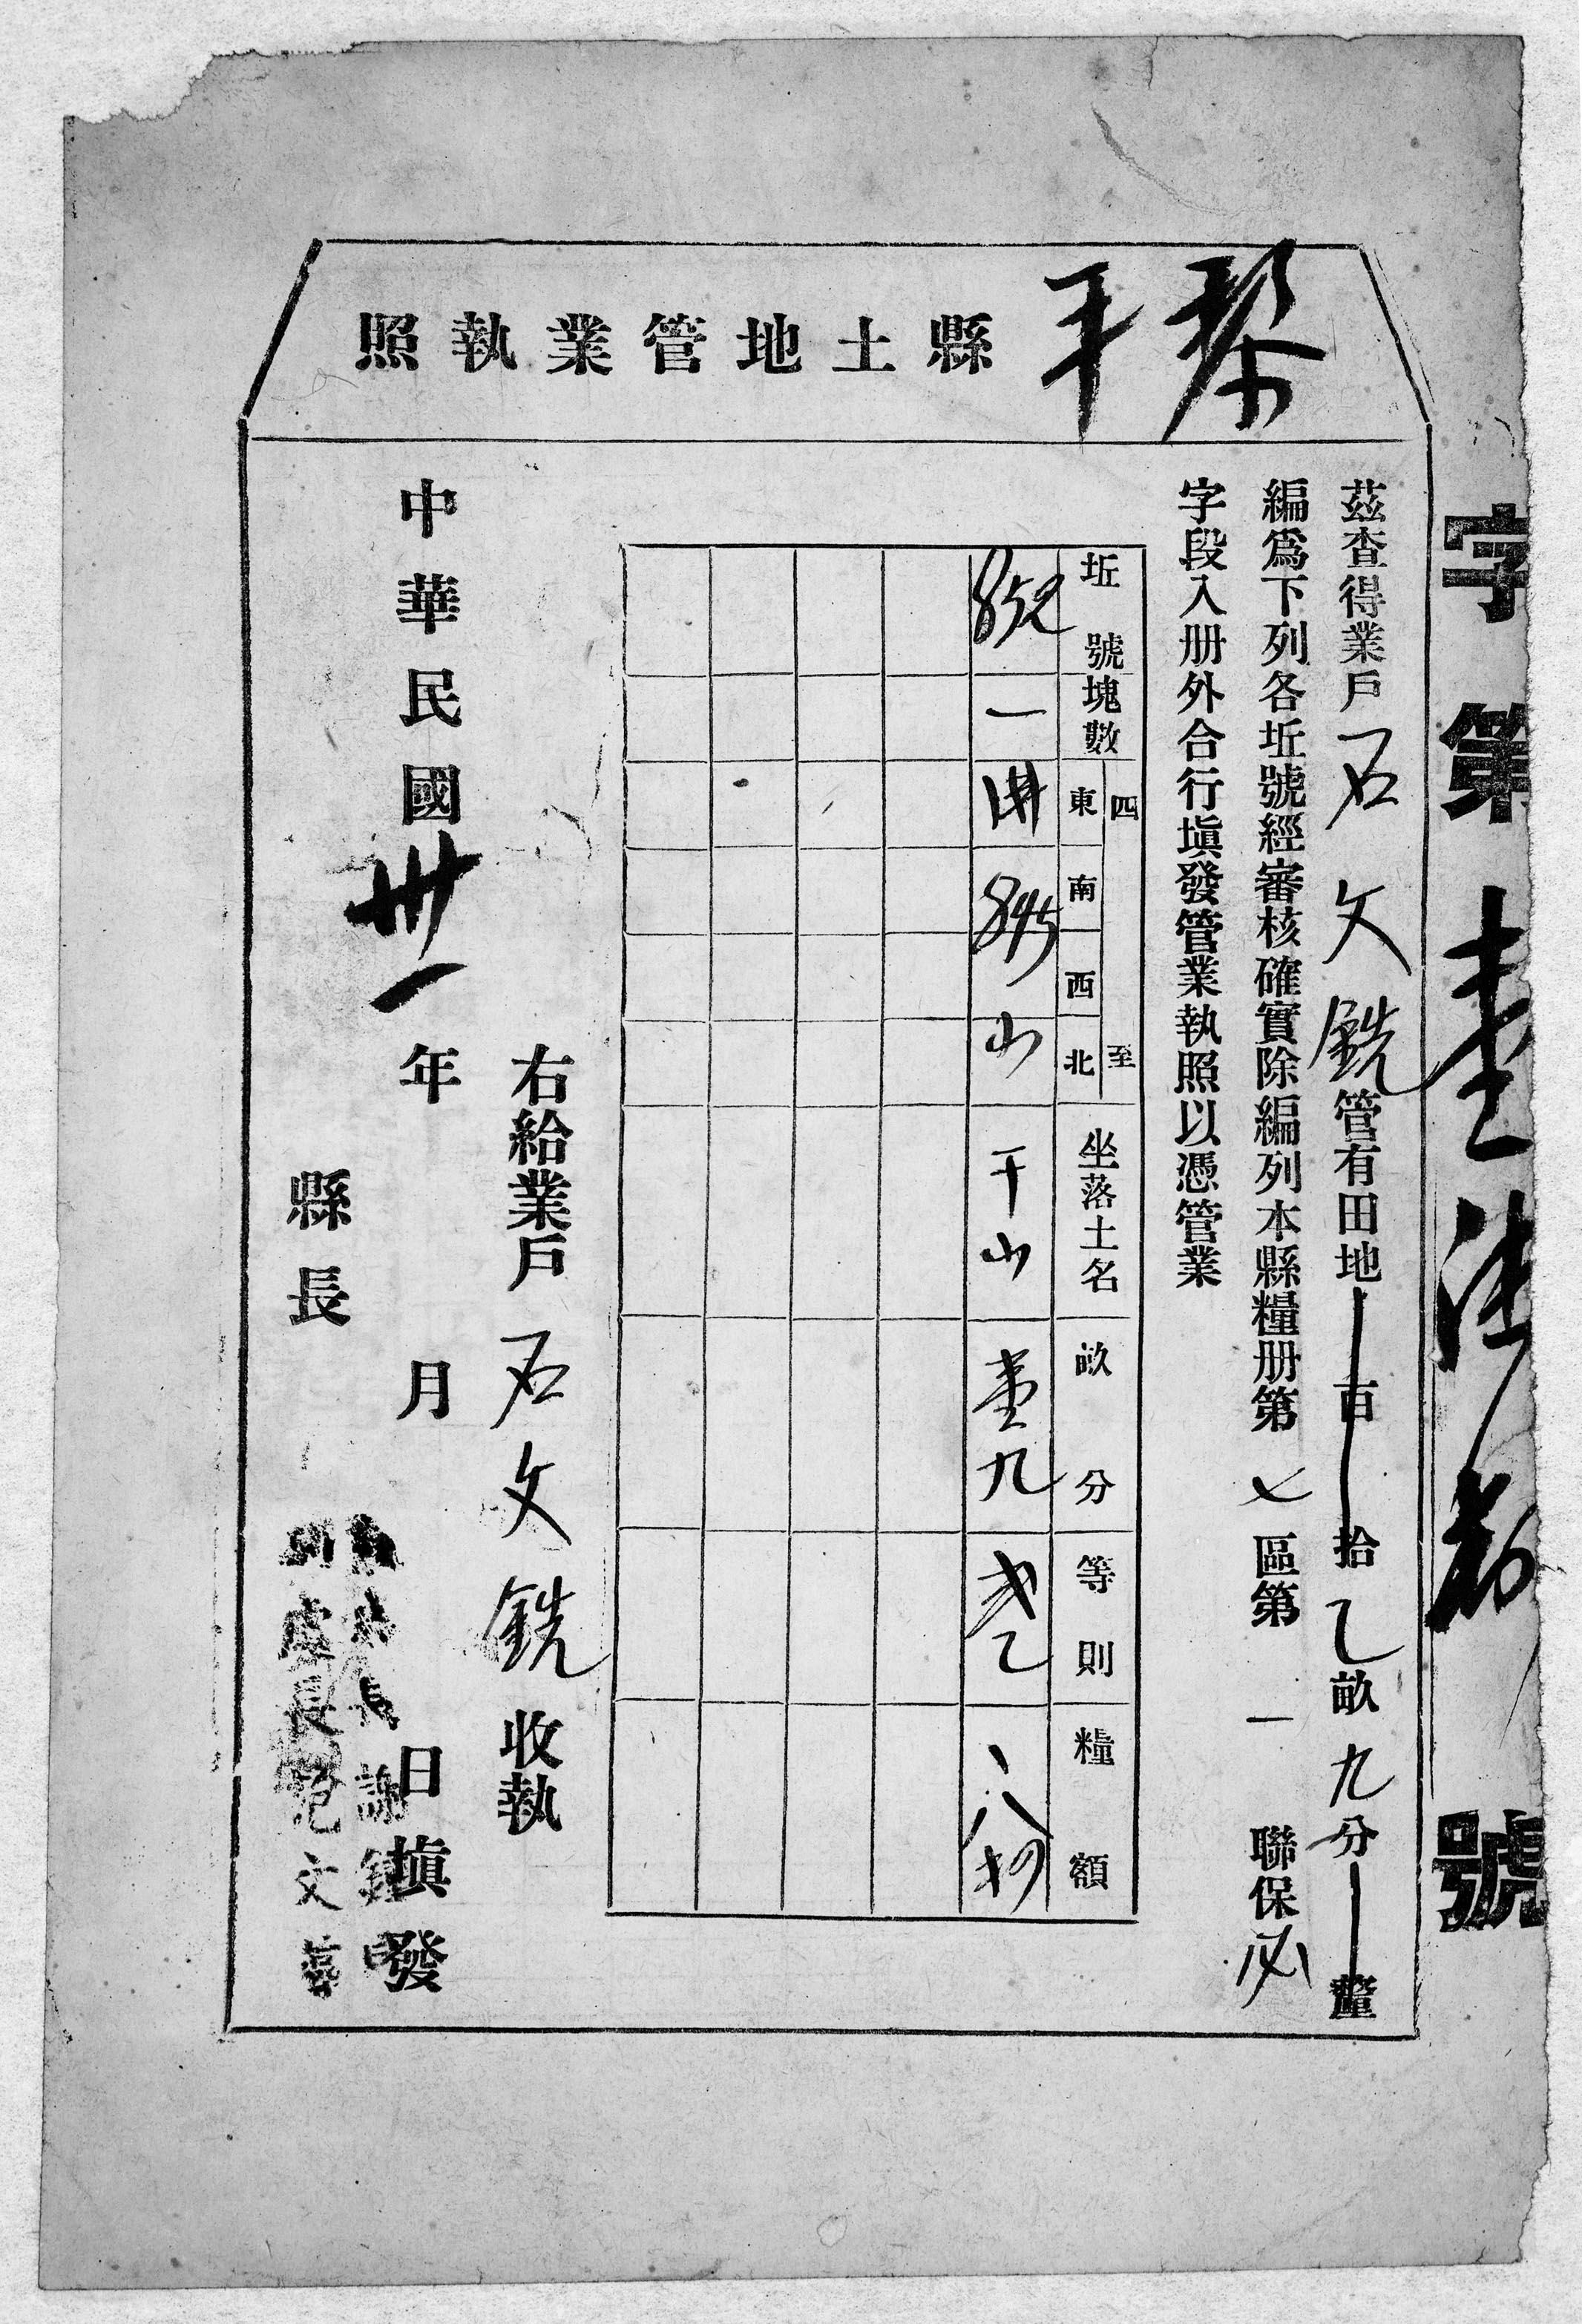 字第壹號
黎平縣土地管業執照
茲查得業戶石文銑管有田地百拾乙畝九分釐
編爲下列各坵號經審核確實除編列本縣糧册第七區第一聯保
字段入册外合行塡發管業執照以憑管業
坵號 塊數 四至 東 南 西 北 坐落土名 畝分 等則 糧額
852 一 845 山 干山 壹九
右給業戶石文銑收執
中華民國卅一年月日塡發
縣長
處長 文